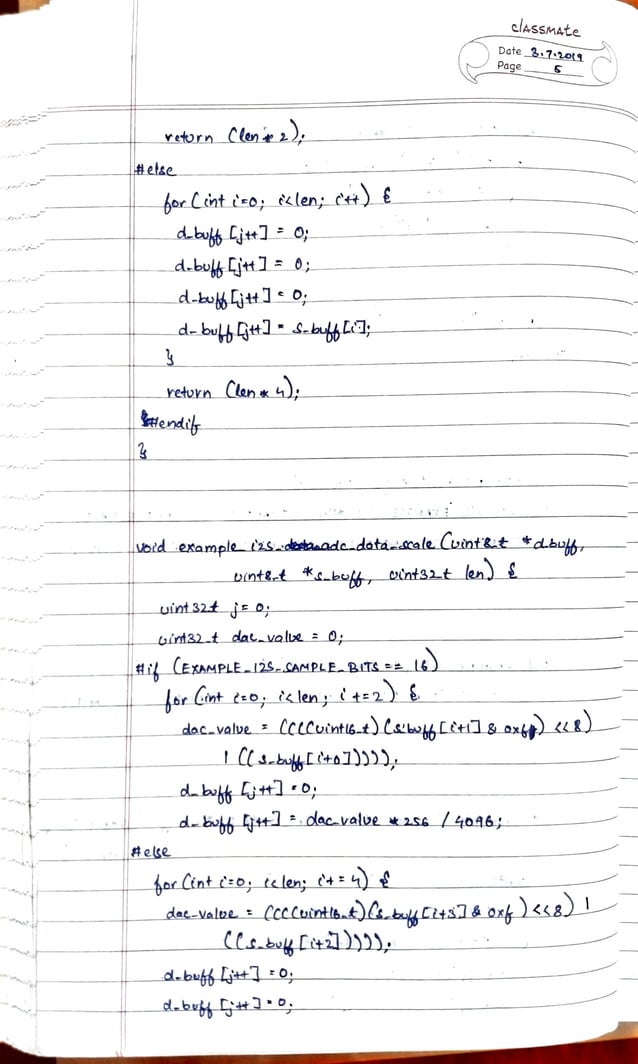 classmate
Date 3.7.2019
Page 5
return (len * 2);
#else
for (int i=0; i<len; i++) {
d_buff [j++] = 0;
d_buff [j++] = 0;
d_buff [j++] = 0;
d_buff [j++] = s_buff [i];
}
return (len * 4);
#endif
}
void example_i2s_adc_data_scale (uint8_t *d_buff,
uint8_t *s_buff, uint32_t len) {
uint32_t j = 0;
uint32_t dac_value = 0;
#if (EXAMPLE_I2S_SAMPLE_BITS == 16)
for (int i=0; i<len; i+=2) {
dac_value = ((((uint16_t) (s_buff [i+1] & 0xf) << 8)
| ((s_buff [i+0]))));
d_buff [j++] = 0;
d_buff [j++] = dac_value * 256 / 4096;
#else
for (int i=0; i<len; i+=4) {
dac_value = ((((uint16_t) (s_buff [i+3] & 0xf) << 8) |
((s_buff [i+2]))));
d_buff [j++] = 0;
d_buff [j++] = 0;